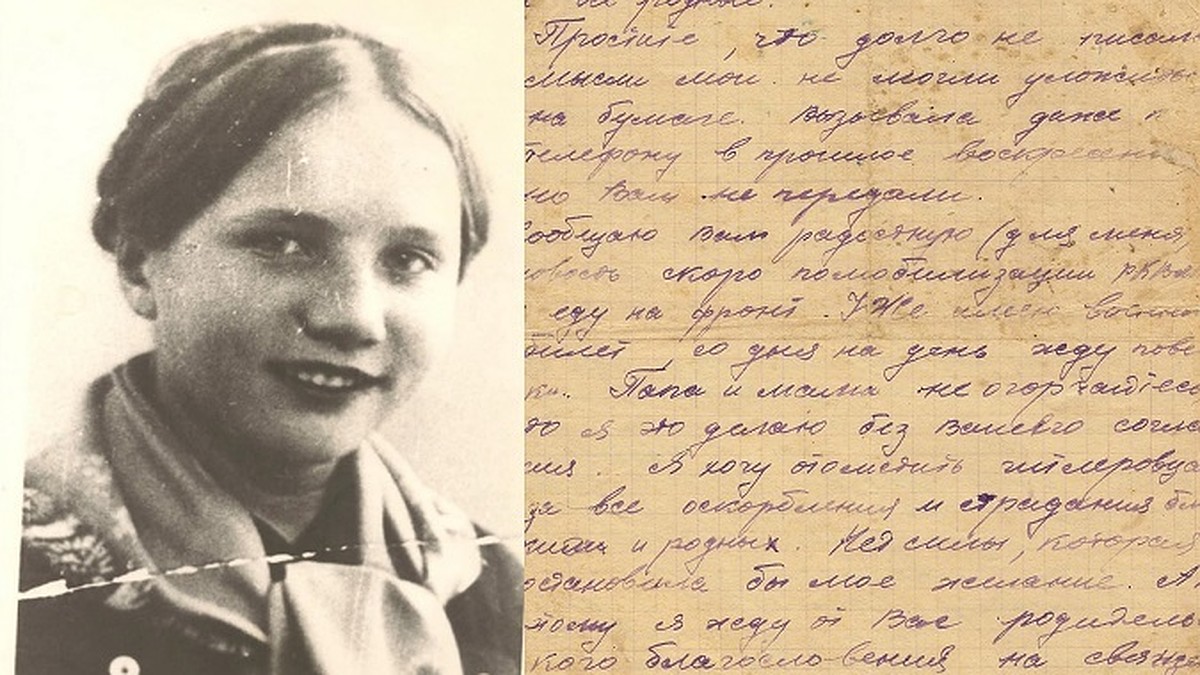 все родные.
Простите, что долго не писала
мысли мои не могли уложить
на бумаге. Вызывала даже п
телефону в прошлое воскресень
но Вам не передали.
сообщаю вам радостную (для меня,
новость скоро помобилизации РККА
еду на фронт. Уже имею военны
билет, со дня на день жду пове
ки. Папа и мама не огорчайтесь
то я это делаю без вашего согла
сия. Я хочу отомстить гитлеровца
за все оскорбления и страдания бл
и родных. Нет силы, которая
остановила бы мое желание. А
тому я жду от Вас родитель
кого благословения на священ